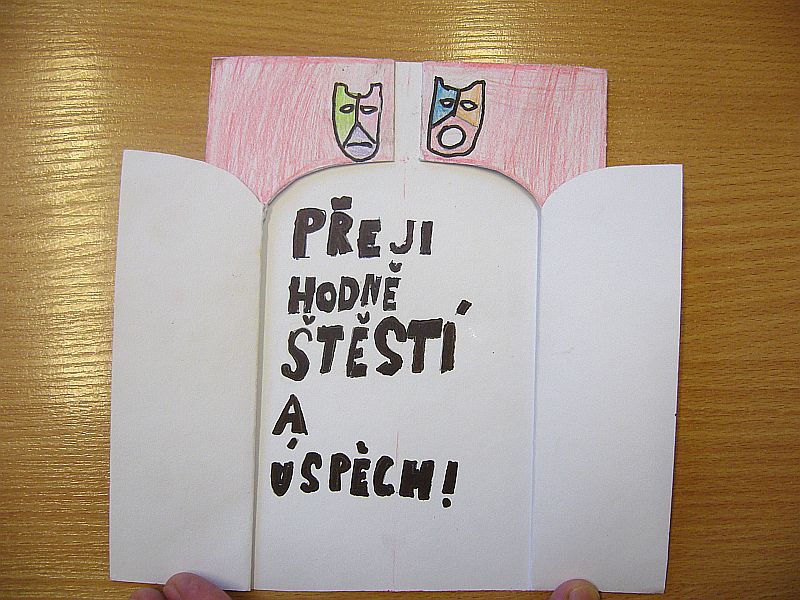 PŘEJI
HODNĚ
ŠTĚSTÍ
A
ÚSPĚCH!